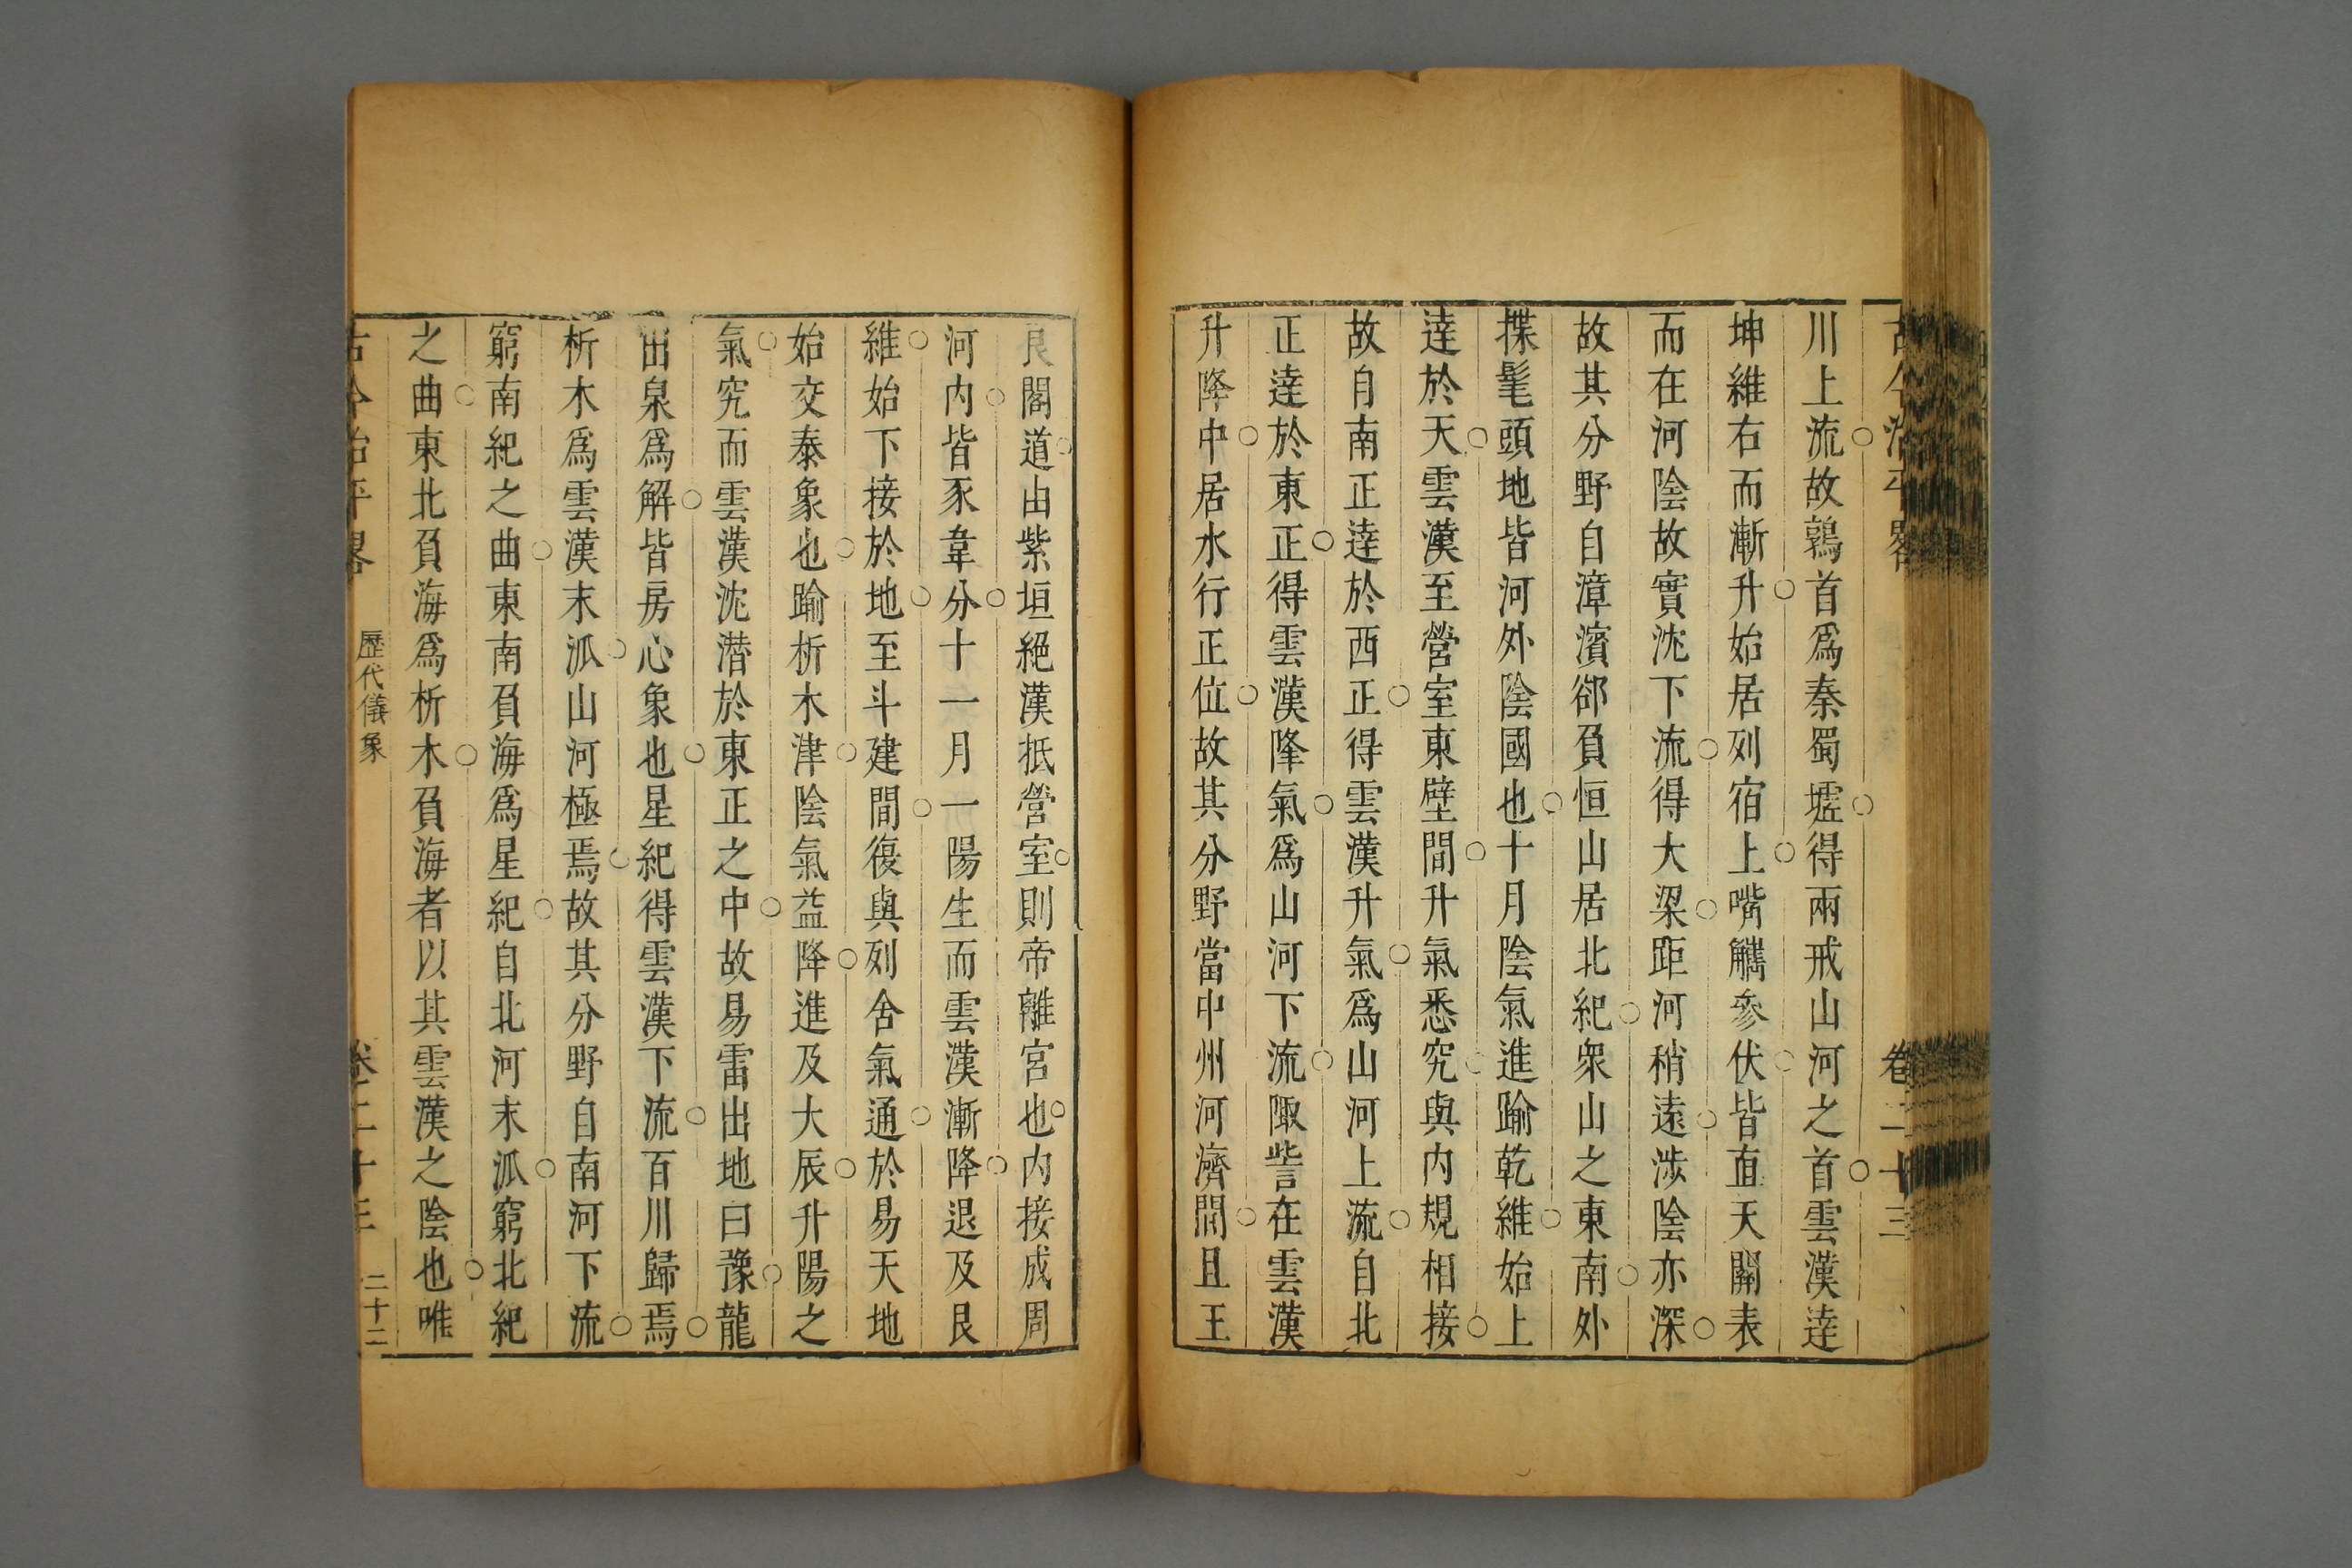 古今治平畧 卷二十三
川上流故鶉首爲秦蜀墟得兩戒山河之首雲漢達
坤維右而漸升始居列宿上嘴觿參伏皆直天關表
而在河陰故實沈下流得大梁距河稍遠涉陰亦深
故其分野自漳濱郤負恒山居北紀衆山之東南外
揲髦頭地皆河外陰國也十月陰氣進踰乾維始上
達於天雲漢至營室東壁間升氣悉究與內規相接
故自南正達於西正得雲漢升氣爲山河上流自北
正達於東正得雲漢降氣爲山河下流陬訾在雲漢
升降中居水行正位故其分野當中州河濟間且王
良閣道由紫垣絕漢抵營室則帝離宮也內接成周
河內皆豕韋分十一月一陽生而雲漢漸降退及艮
維始下接於地至斗建間復與列舍氣通於易天地
始交泰象也踰析木津陰氣益降進及大辰升陽之
氣究而雲漢沈潜於東正之中故易雷出地曰豫龍
出泉爲解皆房心象也星紀得雲漢下流百川歸焉
析木爲雲漢末泒山河極焉故其分野自南河下流
窮南紀之曲東南負海爲星紀自北河末泒窮北紀
之曲東北負海爲析木負海者以其雲漢之陰也唯
古今治平畧 歷代儀象 卷二十三 二十二